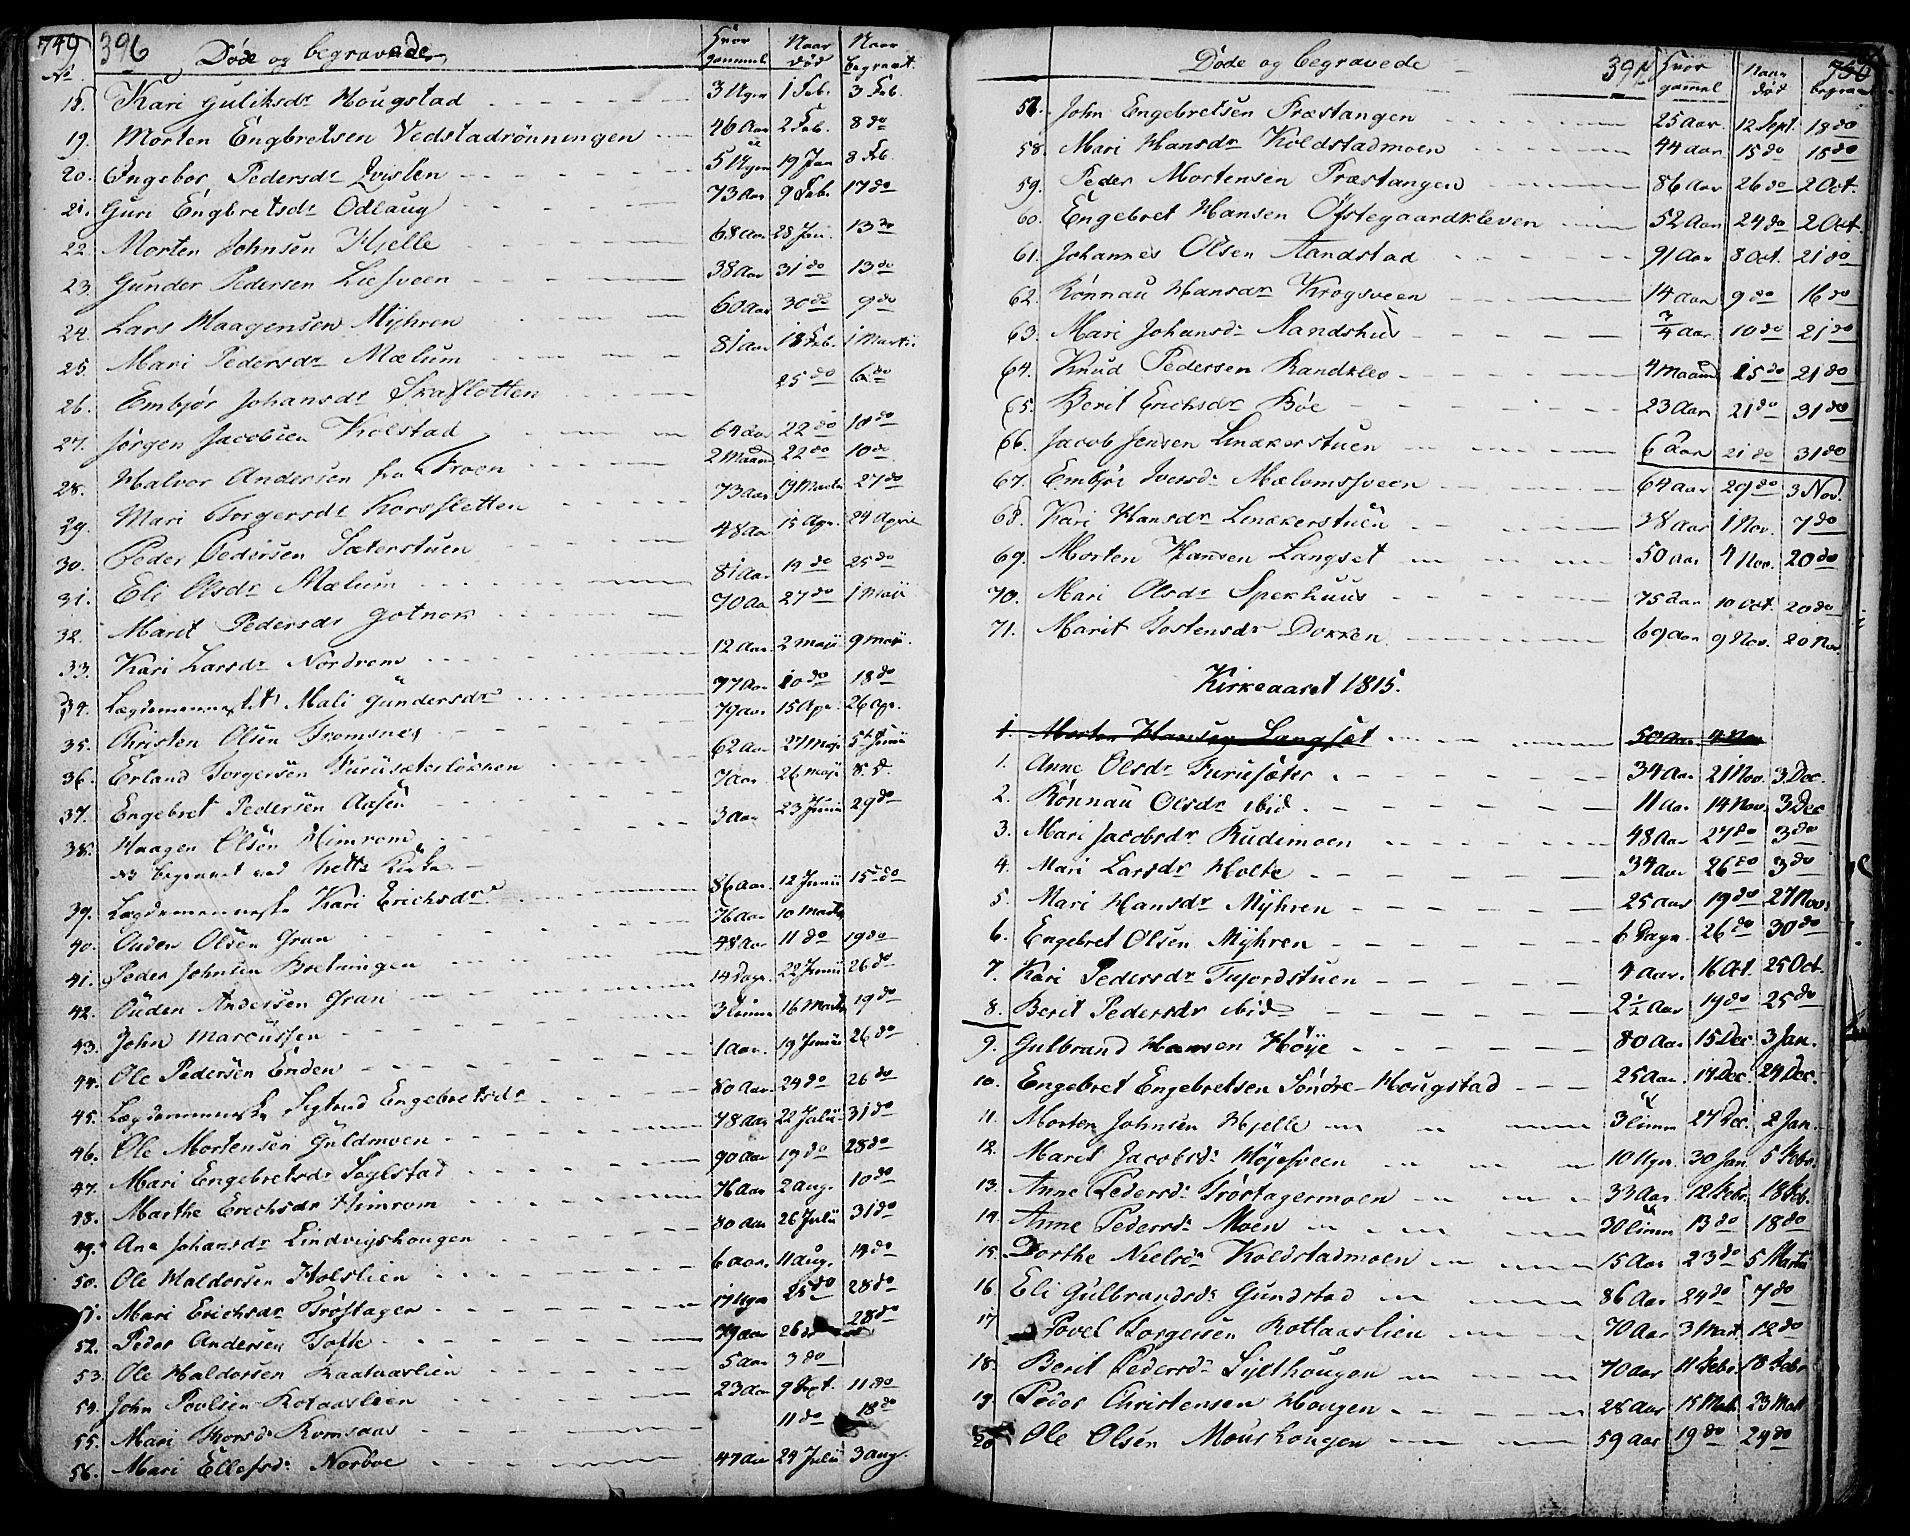 749 396 Døde og begravede
No Hvor gammel Naar død Naar begravet
18. Kari Guliksdr Hougstad 3 Uger 1 Feb. 3 Feb.
19. Morten Engbretsen Vedstadrönningen 46 Aar 2 Feb. 8 do
20. Ingebor Pedersdr Qvislen 5 Uger 19 Jan 8 Feb
21. Guri Engbretsdr Odlaug 73 Aar 9 Feb. 17 do
22. Morten Johnsen Hjelle 68 Aar 28 Jan. 13 do
23. Gunder Pedersen Liesveen 38 Aar 31 do 13 do
24. Lars Haagensen Myhren 60 Aar 30 do 9 do
25. Mari Pedersdr Mælum 81 Aar 18 Feb. 1 Martii
26. Embjør Johansdr Skaslotten 25 do 6 do
27. Jørgen Jacobsen Kolstad 64 Aar 22 do 10 do
28. Halvor Andersen fra Froen 2 Maand 22 do 10 do
29. Mari Torgersdr Korssletten 73 Aar 19 Martii 27 do
30. Peder Pedersen Sæterstuen 48 Aar 15 Apr. 24 April
31. Eli Olsdr Mælum 81 Aar 19 do 25 do
32. Marit Pedersdr Gotnok 70 Aar 27 do 1 Maii
33. Kari Larsdr Nordrom 12 Aar 2 Maii 9 Maji
34. Lægdemennesket Mali Gundersdr 77 Aar 10 do 18 do
35. Christen Olsen Fromsnes 79 Aar 15 Apr. 26 Apr.
36. Erland Torgersen Furusæterløkken 62 Aar 27 Maji 5 Junii
37. Engebret Pedersen Aasen 7 Aar 26 Maji 8 d.
38. Haagen Olsen Himrom 3 Aar 23 Junii 29 do
NB begravet ved Kirke
39. Lægdemenneske Kari Erichsdr 86 Aar 12 Junii 15 do
40. Ouden Olsen Gran 76 Aar 10 Martii
41. Peder Johnsen Bretningen 48 Aar 11 do 19 do
42. Ouden Andersen Gran 14 Dage 22 Junii 26 do
43. John Marcussen 3 Timer 16 Martii 19 do
44. Ole Pedersen Enden 1 Aar. 19 Junii 26 do
45. Lægdemenneske Sigtrud Engebretsdr 80 Aar 24 do 26 do
46. Ole Mortensen Guldmoen 78 Aar 22 Julii 31 do
47. Mari Engebretsdr Seglstad 90 Aar 19 do 28 do
48. Marthe Erichsdr Himrom 76 Aar 2 Aug. 10 do
49. Ane Johansdr Lindvigshougen 80 Aar 26 Julii 31 do
50. Ole Haldorsen Holslien 6 Aar. 11 Aug. 14 do
51. Mari Erichsdr Trøstager 17 Uger 25 do 28 do
52. Peder Andersen Tofte 79 Aar 26 do 28 do
53. Ole Haldorsen Kaataaslien 5 Aar 3 do
54. John Povlsen Kotaaslien 23 Aar 9 Sept. 11 do
55. Mari Thorsdr Romsaas 11 do 18 do
56. Mari Ellefsdr Norboe 47 Aar 24 Julii 3 Aug.
Døde og begravede 397 Hvor gamel Naar død begravet 750
57. John Engebretsen Præstangen 25 Aar. 12 Sept. 18 do
58. Mari Hansdr Koldstadmoen 44 Aar 15 do 18 do
59. Peder Mortensen Præstangen 86 Aar 26 do 2 Oct.
60. Engebret Hansen Ofstegaardkleven 52 Aar 24 do 2 Oct.
61. Johannes Olsen Aandstad 91 Aar 8 Oct. 21 do
62. Rønnau Hansdr Krogsveen 14 Aar 9 do 16 do
63. Mari Johansdr Aandshus 3/4 Aar 10 do 21 do
64. Knud Pedersen Randklev 4 Maaned 15 do 21 do
65. Berit Erichsdr Bøe 23 Aar 21 do 31 do
66. Jacob Jensen Linakerstuen 6 Aar 21 do 31 do
67. Embjør Iversdr Mælomssveen 64 Aar 29 do 3 Nov.
68. Kari Hansdr Linakerstuen 38 Aar 1 Nov. 7 do
69. Morten Hansen Langset 50 Aar 4 Nov. 20 do
70. Mari Olsdr Spekhuus 75 Aar 10 Oct. 20 do
71. Marit Tostensdr Dokken 69 Aar 9 Nov. 20 Nov.
Kirkeaaret 1815.
1. Morten Hansen Langset 50 Aar 4 Nov
1. Anne Olsdr Furusæter 34 Aar 21 Nov. 3 Dec.
2. Rønnau Olsdr ibid. 11 Aar 14 Nov. 3 Dec
3. Mari Jacobsdr Rudimoen 48 Aar 27 do 3 do
4. Mari Larsdr Holte 34 Aar 26 do 3 do
5. Mari Hansdr Myhren 25 Aar 19 do 27 Nov.
6. Engebret Olsen Myhren 6 Dage 26 do 30 do
7. Kari Pedersdr Fujordstuen 4 Aar. 16 Oct. 25 Oct.
8. Berit Pedersdr ibid 2 1/2 Aar 19 do 25 do
9. Gulbrand Hansen Høije 80 Aar 15 Dec 3 Jan.
10. Engebret Engebretsen Søndre-Hougstad 25 Aar. 17 Dec. 29 Dec.
11. Morten Johnsen Hjelle 3 Timer 27 Dec. 2 Jan.
12. Marit Jacobsdr Høiesveen 10 Uger. 30 Jan 5 Febr.
13. Anne Pedersdr Trøstagermoen 33 Aar 12 Febr. 18 Feb.
14. Anne Pedersdr Moen 30 Timer 13 do 18 do
15. Dorthe Nielsdr Koldstadmoen 15 Aar 23 do 5 Martii
16 Eli Gulbrandsdr Gundstad 86 Aar 24 do 7 do
17 Povel Torgersen Kottaaslien 70 Aar 3 Mart. 12 do
18. Berit Pedersdr Sylthougen 70 Aar 11 Febr. 18 Febr
19. Peder Christensen Hougen 28 Aar 15 Mart. 23 Mart
20 Ole Olsen Mourhougen 59 Aar 19 do 29 do